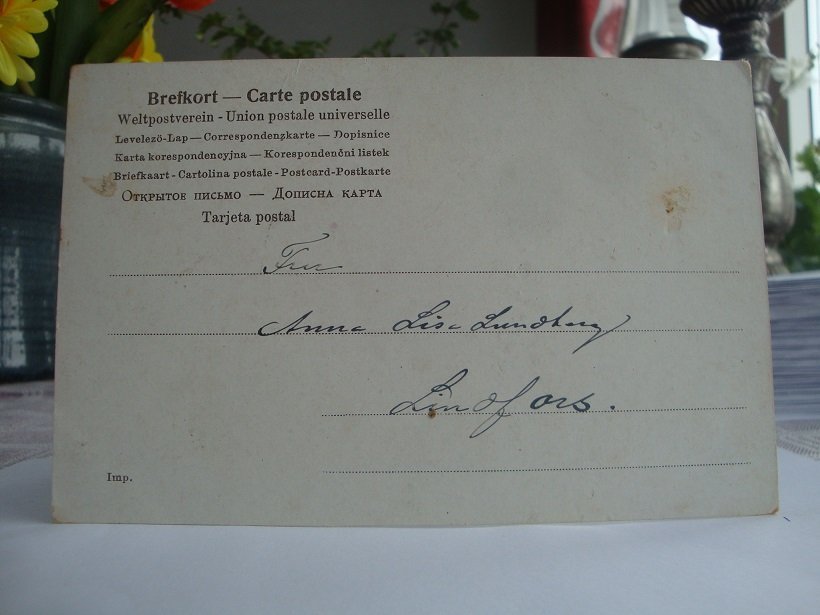 Brefkort — Carte postale
Weltpostverein - Union postale universelle
Levelezö-Lap — Correspondenzkarte — Dopisnice
Karta korespondencyjna — Korespondenční listek
Briefkaart - Cartolina postale - Postcard-Postkarte
Открытое письмо — Дописна карта
Tarjeta postal
Fru
Anna Lisa Lundberg
Lindfors.
Imp.